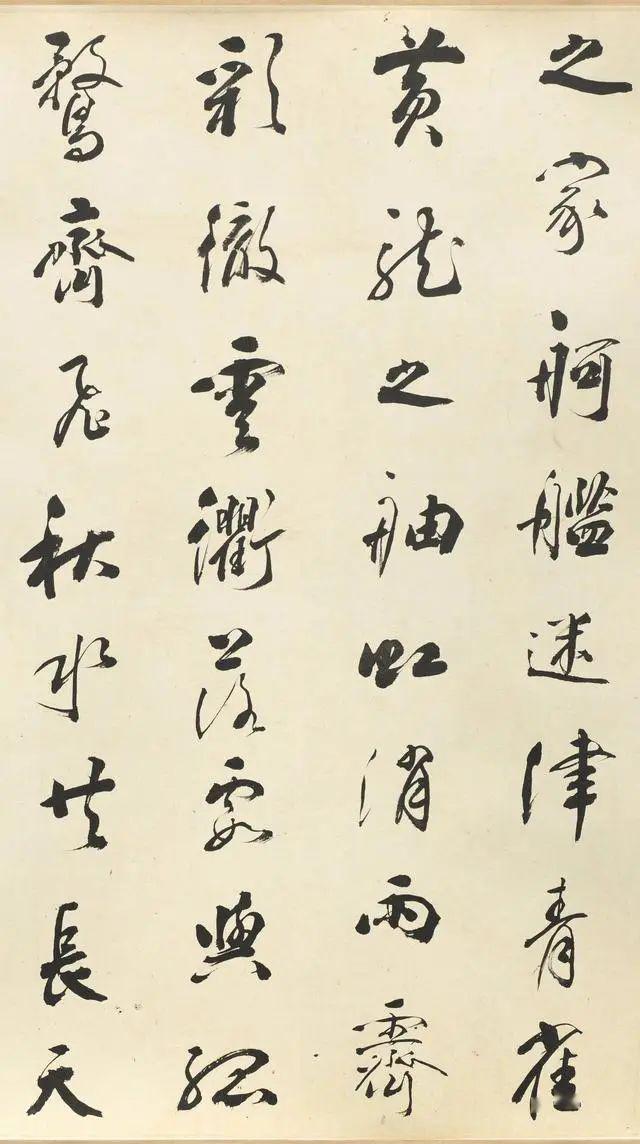 之家舸艦迷津青雀
黄龍之舳虹消雨霽
彩徹雲衢落霞與孤
鶩齊飛秋水共長天